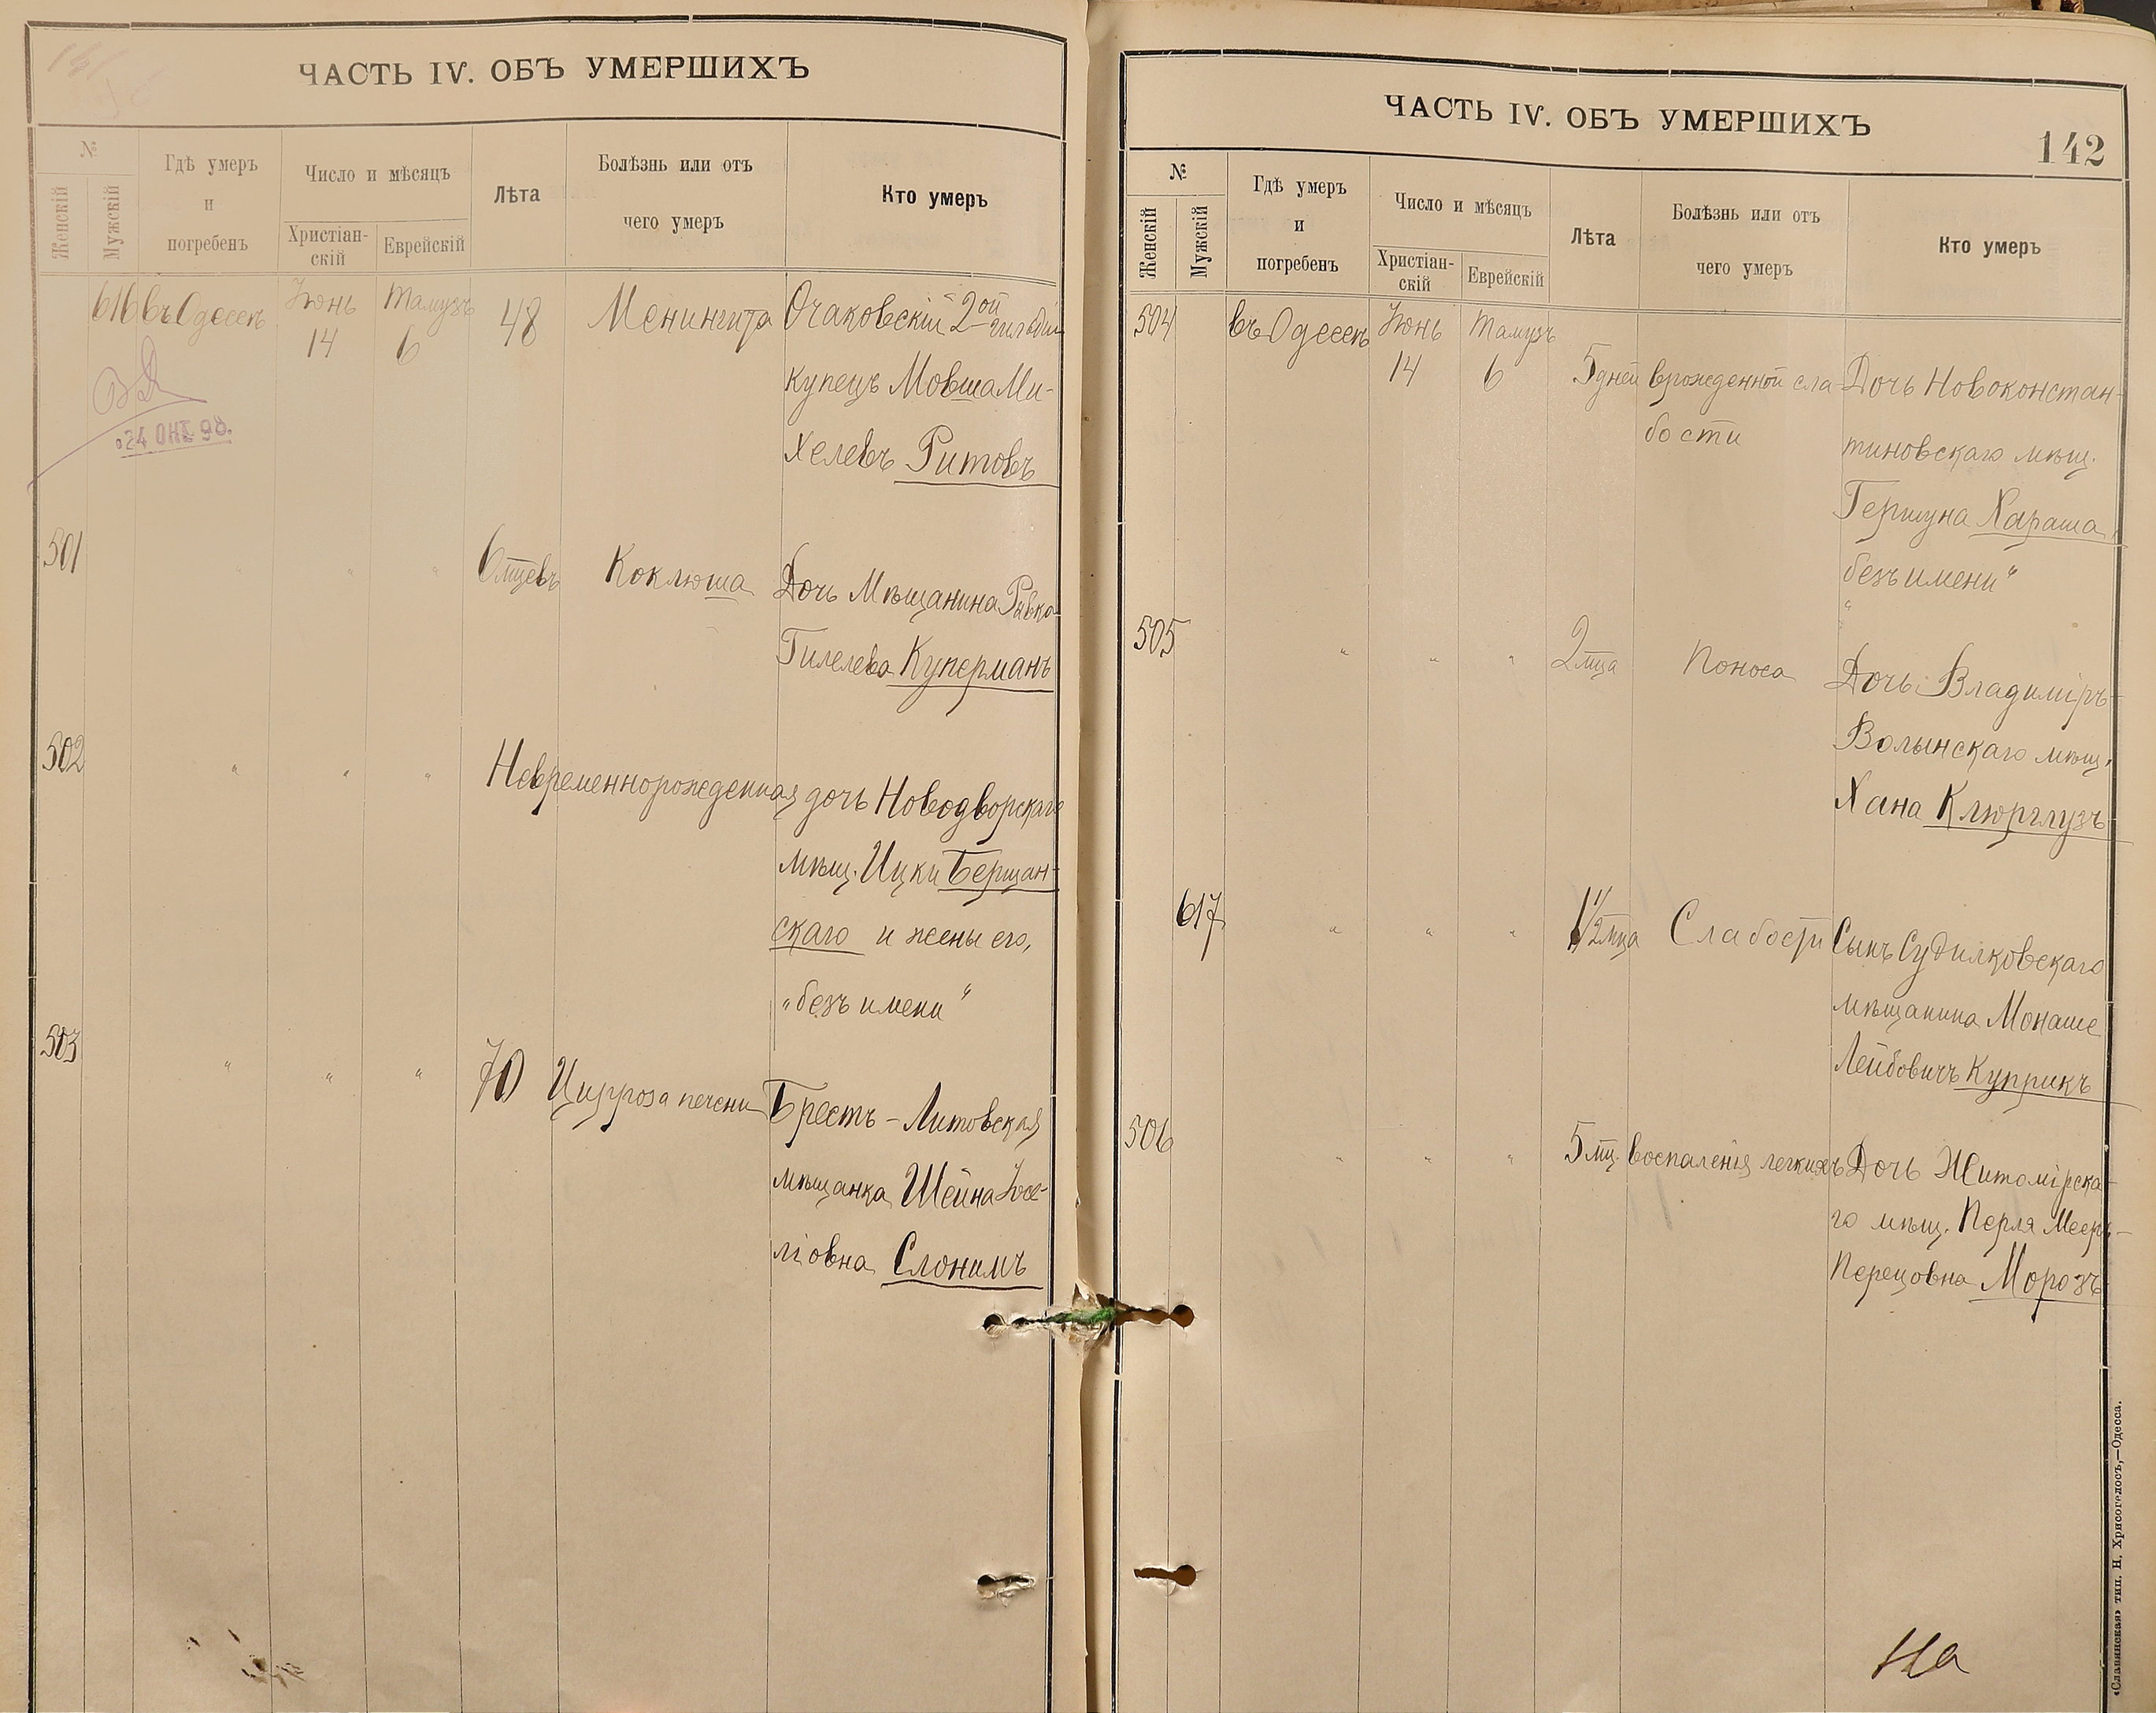 ЧАСТЬ IV. ОБЪ УМЕРШИХЪ
№
Женскій
Мужскій
Гдѣ умеръ
и
погребенъ
Число и мѣсяцъ
Христіан-
скій
Еврейскій
Лѣта
Болѣзнь или отъ
чего умеръ
Кто умеръ
616 въ Одессѣ Іюнь 14 Тамузъ 6 48 Менингита Очаковскій 2ой гильдіи
купецъ Мовша Ми-
хелевъ Ритовъ
24 ОКТ. 98.
501 " " " 6 мцевъ Коклюша Дочь Мѣщанина Ривка
Гилелева Куперманъ
502 " " " Невременнорожденная дочь Новодворскаго
мѣщ. Ицки Бершан-
скаго и жены его,
„безъ имени“
503 " " " 70 Цирроза печени Брестъ-Литовская
мѣщанка Шейна Іосе-
ліовна Слонимъ
ЧАСТЬ IV. ОБЪ УМЕРШИХЪ
142
№
Женскій
Мужскій
Гдѣ умеръ
и
погребенъ
Число и мѣсяцъ
Христіан-
скій
Еврейскій
Лѣта
Болѣзнь или отъ
чего умеръ
Кто умеръ
504 въ Одессѣ Іюнь Тамузъ
14 6 5 дней врожденной сла- Дочь Новоконстан-
бости тиновскаго мѣщ.
Гершуна Хараша,
„безъ имени“
505 " " " 2 мца Поноса Дочь Владиміръ-
Волынскаго мѣщ.
Хана Клюрглузъ
617 " " " 1 1/2 мца Слабости Сынъ Судилковскаго
мѣщанина Монаше
Лейбовичъ Куприкъ
506 " " " 5 мц. воспаленія легкихъ Дочь Житомірска-
го мѣщ. Перля Меер-
Перецовна Морозъ
На
«Славянская» тип. Н. Хрисогелосъ,—Одесса.